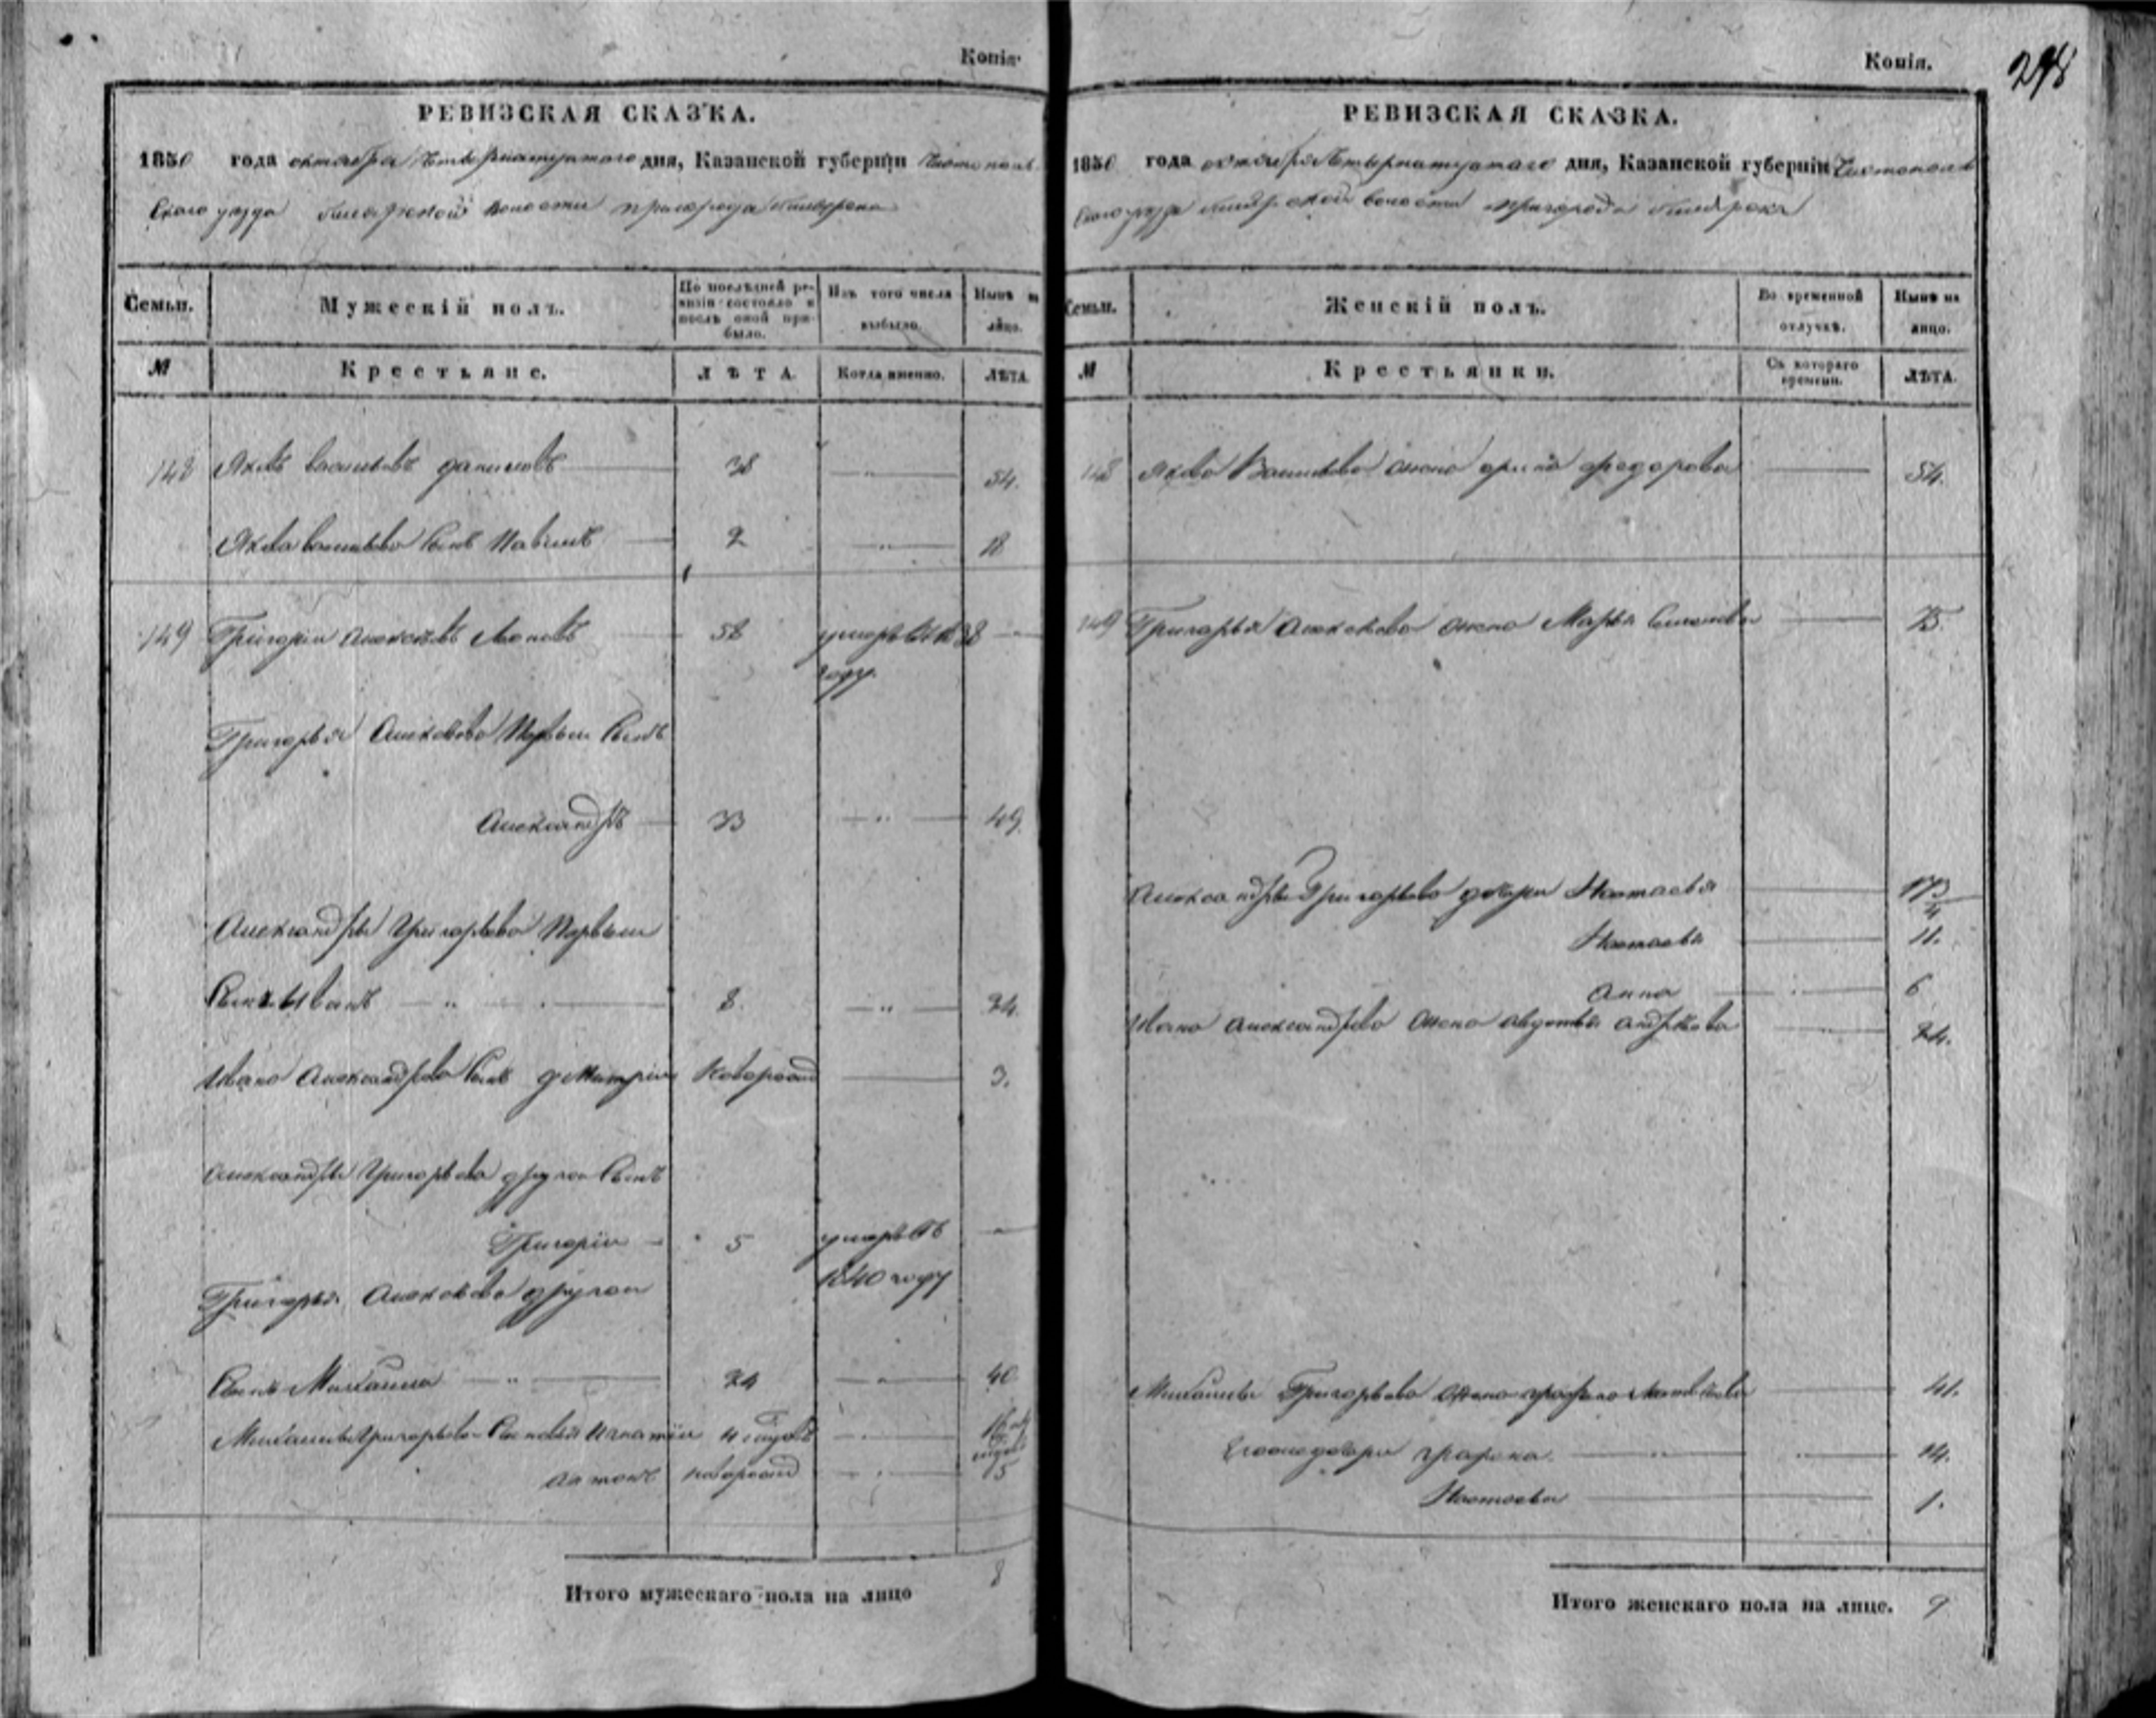 Копія.
РЕВИЗСКАЯ СКАЗКА.
1850 года октября четырнатцатаго дня, Казанской губерніи Чистополь-
скаго уезда Билярской волости пригорода Билярска
Семьи. Мужескій полъ. По послѣдней ре-
визіи состояло и
послѣ оной при-
было. Изъ того числа
выбыло. Нынѣ на
лицо.
№ Крестьяне. ЛѢТА. Когда именно. ЛѢТА.
148 Яковъ Васильевъ Даниловъ 38 — " — 54.
Якова Васильева сынъ Павелъ 2 — " — 18
149 Григорій Алексѣевъ 58 умеръ въ 1838
году.
Григорья Алексѣева первый сынъ
Александръ 33 — " — 49.
Александры Григорьева первый
сынъ Иванъ — " — 8. — " — 24.
Ивана Александрова сынъ Дмитрій новорожд — 3.
Александры Григорьева другой сынъ
Григорій — 5 умеръ въ —
1840 году
Григорья Алексѣева другой
сынъ Михаила — " — 24 — " — 40
Михаилы Григорьева сыновья Игнатій
Антонъ новорожд — " — 5
Итого мужескаго пола на лицо 8
Копія.
298
РЕВИЗСКАЯ СКАЗКА.
1850 года октября четырнатцатаго дня, Казанской губерніи Чистополь
скаго уезда Билярской волости пригорода Билярска
Семьи. Женскій полъ. Во временной
отлучкѣ. Нынѣ на
лицо.
№ Крестьянки. Съ котораго
времени. ЛѢТА.
148 Якова Васильева жена Федорова — 54.
149 Григорья Алексѣева жена Марья Семенова — 75.
Александры Григорьева дочери Настасья —
Настасья — 11.
Анна — 6
Ивана Александрова жена Авдотья Андрѣева — 24.
Михаилы Григорьева жена 41.
дочери — " — 14.
Настасья — 1.
Итого женскаго пола на лицо. 9